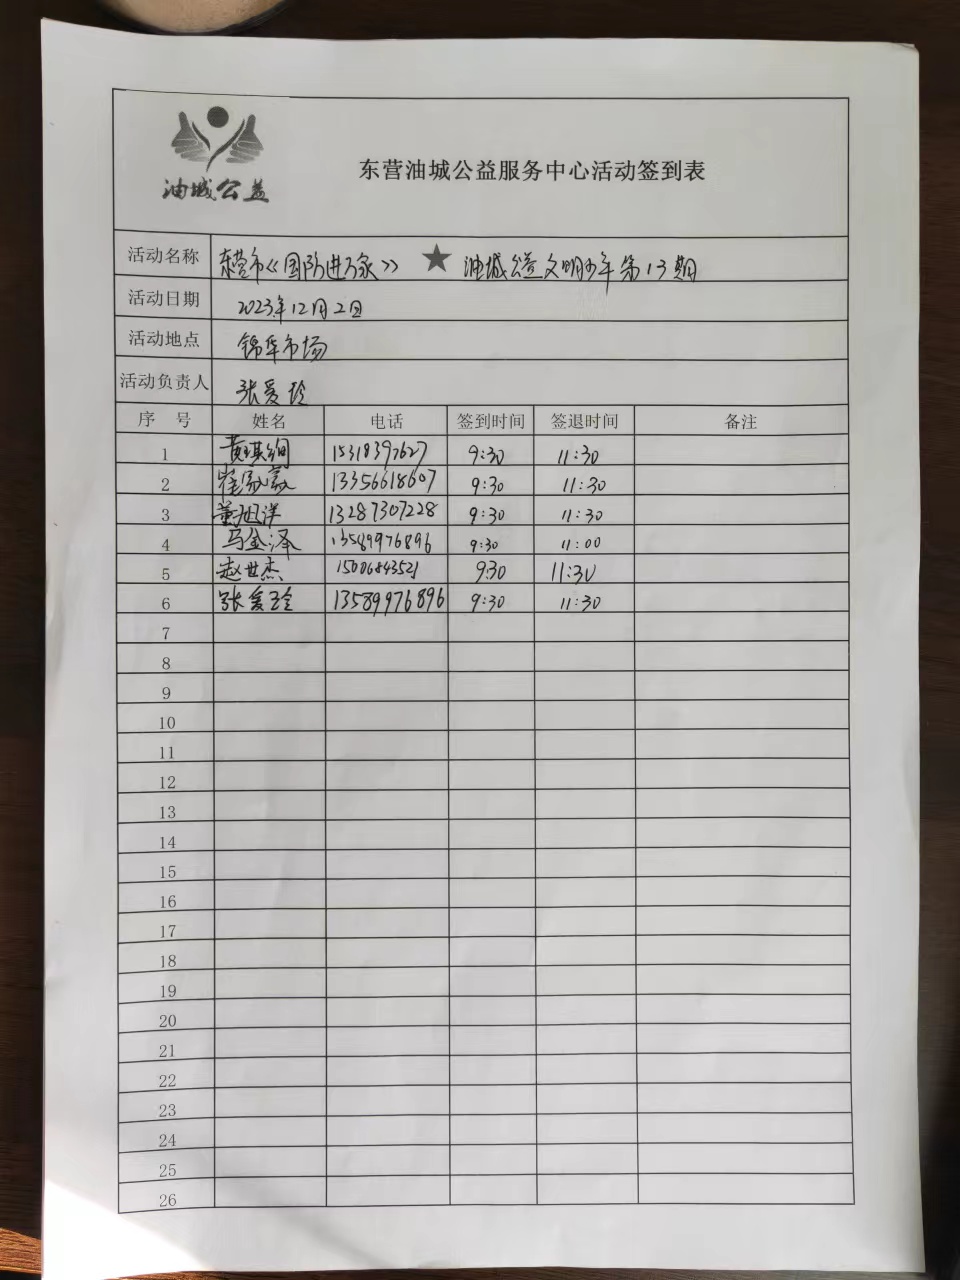 油城公益
东营油城公益服务中心活动签到表
活动名称 东营市《国防进万家》 ★ 油城公益文明少年第13期
活动日期 2023年12月2日
活动地点 锦华市场
活动负责人 张爱玲
序 号 姓名 电话 签到时间 签退时间 备注
1 黄琪绚 15318397627 9:30 11:30
2 崔家豪 13356618607 9:30 11:30
3 董旭洋 13287307228 9:30 11:30
4 马金泽 13589976896 9:30 11:00
5 赵世杰 15006843521 9:30 11:30
6 张爱玲 13589976896 9:30 11:30
7
8
9
10
11
12
13
14
15
16
17
18
19
20
21
22
23
24
25
26